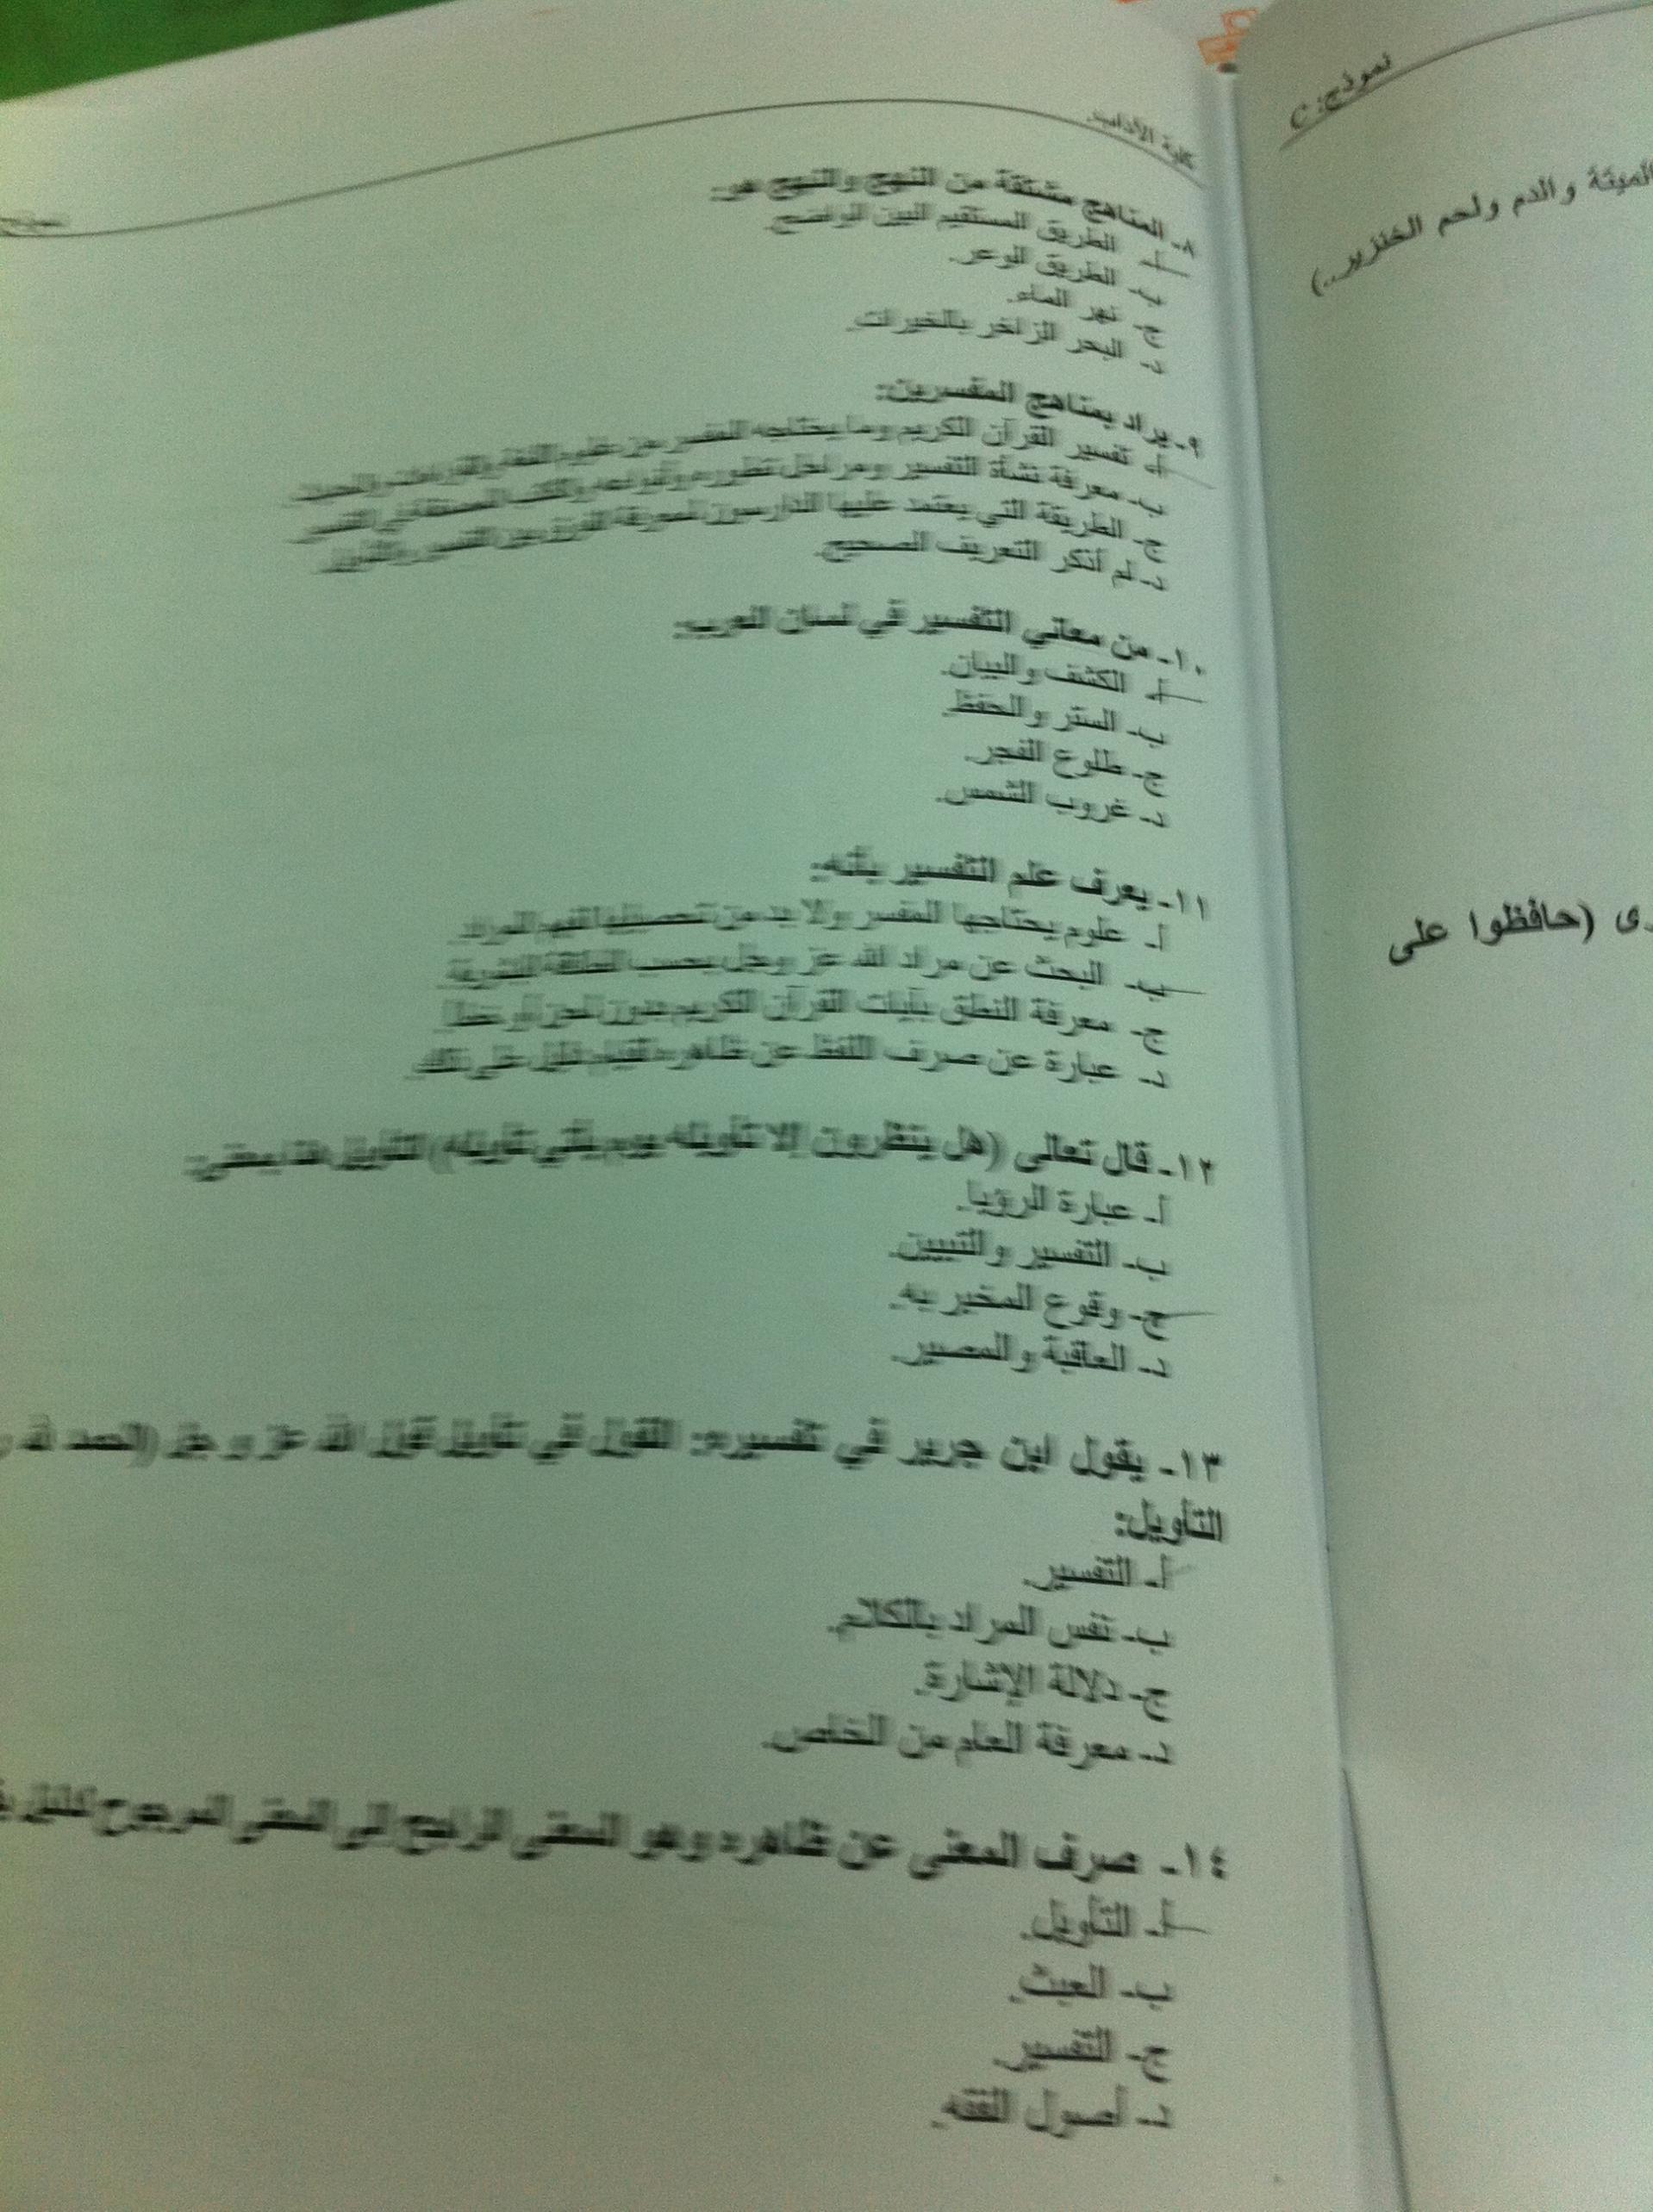 كلية الآداب
٨- المناهج مشتقة من النهج والنهج هو:
أ- الطريق المستقيم البين الواضح.
ب- الطريق الوعر.
ج- نهر الماء.
د- البحر الزاخر بالخيرات.
٩- يراد بمناهج المفسرين:
أ- تفسير القرآن الكريم وما يحتاجه المفسر من علوم اللغة والقراءات والحديث.
ب- معرفة نشأة التفسير ومراحل تطوره وأنواعه والكتب المصنفة في التفسير
ج- الطريقة التي يعتمد عليها الدارسون لمعرفة الفرق بين التفسير والتأويل.
د- لم أذكر التعريف الصحيح.
١٠- من معاني التفسير في لسان العرب:
أ- الكشف والبيان.
ب- الستر والحفظ.
ج- طلوع الفجر.
د- غروب الشمس.
١١- يعرف علم التفسير بأنه:
أ- علوم يحتاجها المفسر ولا بد من تحصيلها لفهم المراد.
ب- البحث عن مراد الله عز وجل بحسب الطاقة البشرية.
ج- معرفة النطق بآيات القرآن الكريم بدون لحن أو خطأ.
د- عبارة عن صرف اللفظ عن ظاهره لقيام دليل على ذلك.
١٢- قال تعالى (هل ينظرون إلا تأويله يوم يأتي تأويله) التأويل هنا بمعنى:
أ- عبارة الرؤيا.
ب- التفسير والتبيين.
ج- وقوع المخبر به.
د- العاقبة والمصير.
١٣- يقول ابن جرير في تفسيره: القول في تأويل قول الله عز وجل (الحمد لله
التأويل:
أ- التفسير.
ب- نفس المراد بالكلام.
ج- دلالة الإشارة.
د- معرفة العام من الخاص.
١٤- صرف المعنى عن ظاهره وهو المعنى الراجح إلى المعنى المرجوح لدليل
أ- التأويل.
ب- العبث.
ج- التفسير.
د- أصول الفقه.
نموذج: C
الميتة والدم ولحم الخنزير..)
(حافظوا على